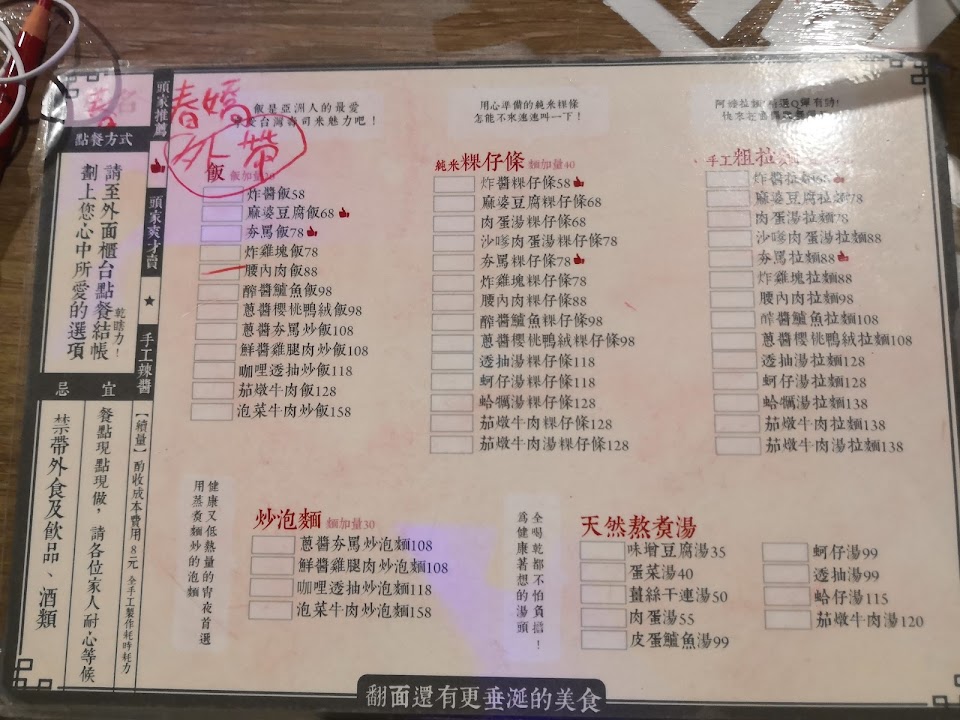 春嬌
外帶
點餐方式
請至外面櫃台點餐結帳
乾瞎力！
劃上您心中所愛的選項
忌
宜
餐點現點現做，請各位家人耐心等候
禁帶外食及飲品、酒類
頭家推薦
頭家爽才賣
★
手工辣醬
【續量】酌收成本費用8元 全手工製作耗時耗力
飯是亞洲人的最愛
飯
炸醬飯58
麻婆豆腐飯68
夯罵飯78
炸雞塊飯78
腰內肉飯88
醉醬鱸魚飯98
蔥醬櫻桃鴨絨飯98
蔥醬夯罵炒飯108
鮮醬雞腿肉炒飯108
咖哩透抽炒飯118
茄燉牛肉飯128
泡菜牛肉炒飯158
用心準備的純米粿條
怎能不來速速叫一下！
純米粿仔條 麵加量40
炸醬粿仔條58
麻婆豆腐粿仔條68
肉蛋湯粿仔條68
沙嗲肉蛋湯粿仔條78
夯罵粿仔條78
炸雞塊粿仔條78
腰內肉粿仔條88
醉醬鱸魚粿仔條98
蔥醬櫻桃鴨絨粿仔條98
透抽湯粿仔條118
蚵仔湯粿仔條118
蛤蠣湯粿仔條128
茄燉牛肉粿仔條128
茄燉牛肉湯粿仔條128
手工粗拉麵
炸醬拉麵68
麻婆豆腐拉麵78
肉蛋湯拉麵78
沙嗲肉蛋湯拉麵88
夯罵拉麵88
炸雞塊拉麵88
腰內肉拉麵98
醉醬鱸魚拉麵108
蔥醬櫻桃鴨絨拉麵108
透抽湯拉麵128
蚵仔湯拉麵128
蛤蠣湯拉麵138
茄燉牛肉拉麵138
茄燉牛肉湯拉麵138
健康又低熱量的宵夜首選
用蒸煮麵炒的泡麵
炒泡麵 麵加量30
蔥醬夯罵炒泡麵108
鮮醬雞腿肉炒泡麵108
咖哩透抽炒泡麵118
泡菜牛肉炒泡麵158
全喝乾都不怕負擔！
為健康著想的湯頭
天然熬煮湯
味增豆腐湯35
蛋菜湯40
薑絲干連湯50
肉蛋湯55
皮蛋鱸魚湯99
蚵仔湯99
透抽湯99
蛤仔湯115
茄燉牛肉湯120
翻面還有更垂涎的美食